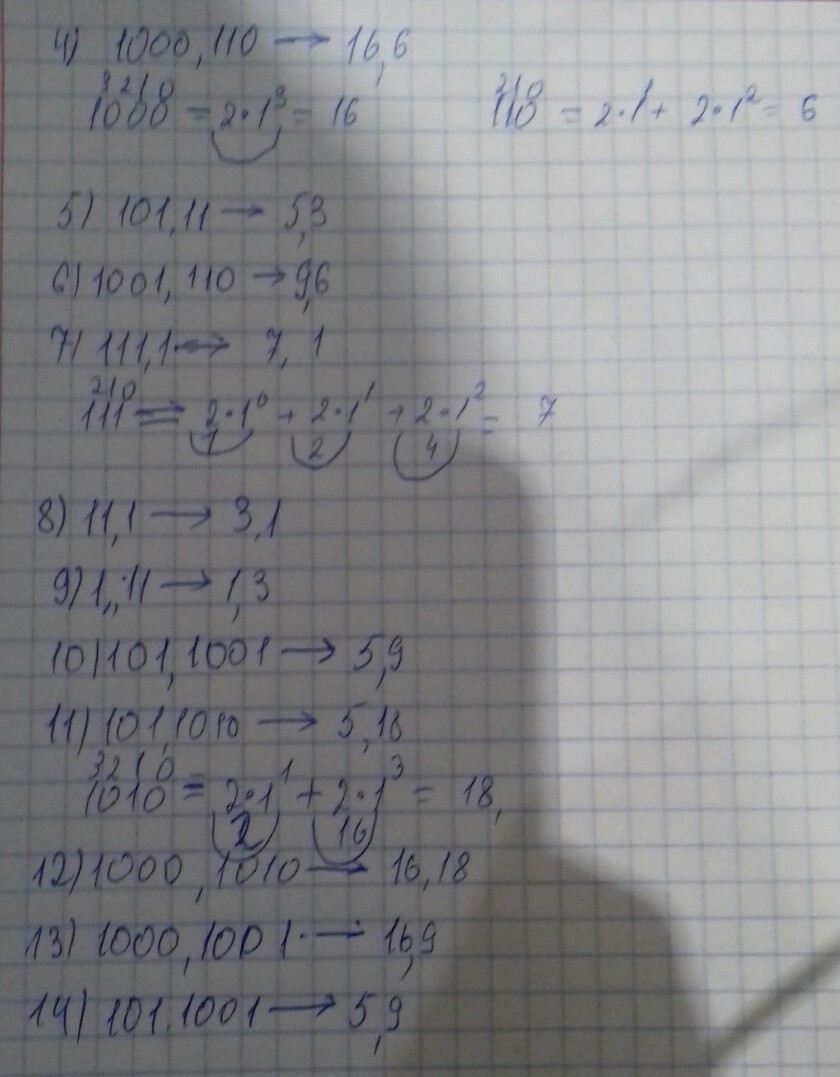 4) 1000,110 → 16,6
3210
1000 = 2·1³ = 16
210
110 = 2·1¹ + 2·1² = 6
5) 101,11 → 5,3
6) 1001,110 → 9,6
7) 111,1 → 7,1
210
111 = 2·1⁰ + 2·1¹ + 2·1² = 7
1 2 4
8) 11,1 → 3,1
9) 1,11 → 1,3
10) 101,1001 → 5,9
11) 101,1010 → 5,18
3210
1010 = 2·1¹ + 2·1³ = 18,
2 16
12) 1000,1010 → 16,18
13) 1000,1001 → 16,9
14) 101,1001 → 5,9